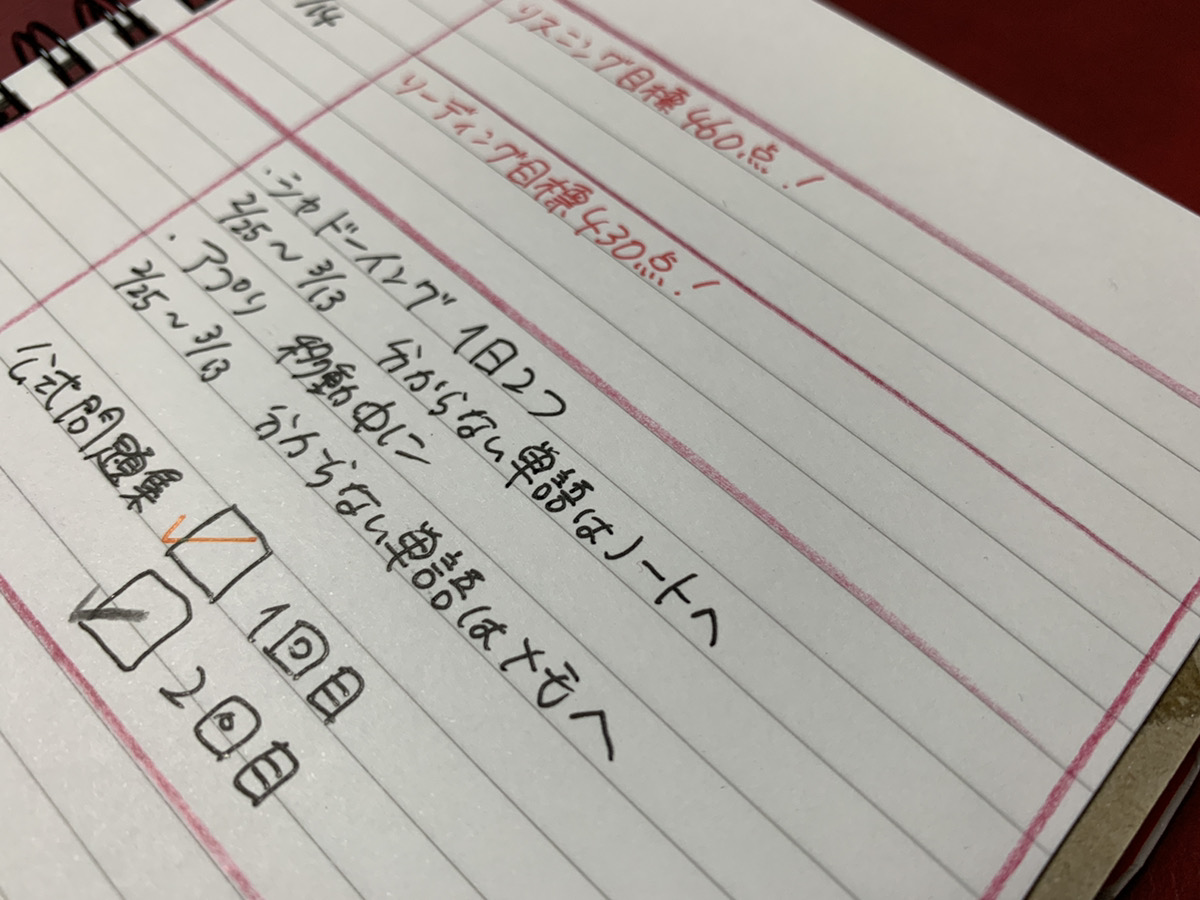 /14
リスニング目標460点!
リーディング目標430点!
・シャドーイング 1日2つ
2/25～3/13 分からない単語はノートへ
・アプリ 移動中に
2/25～3/13 分からない単語はメモへ
公式問題集 1回目
2回目